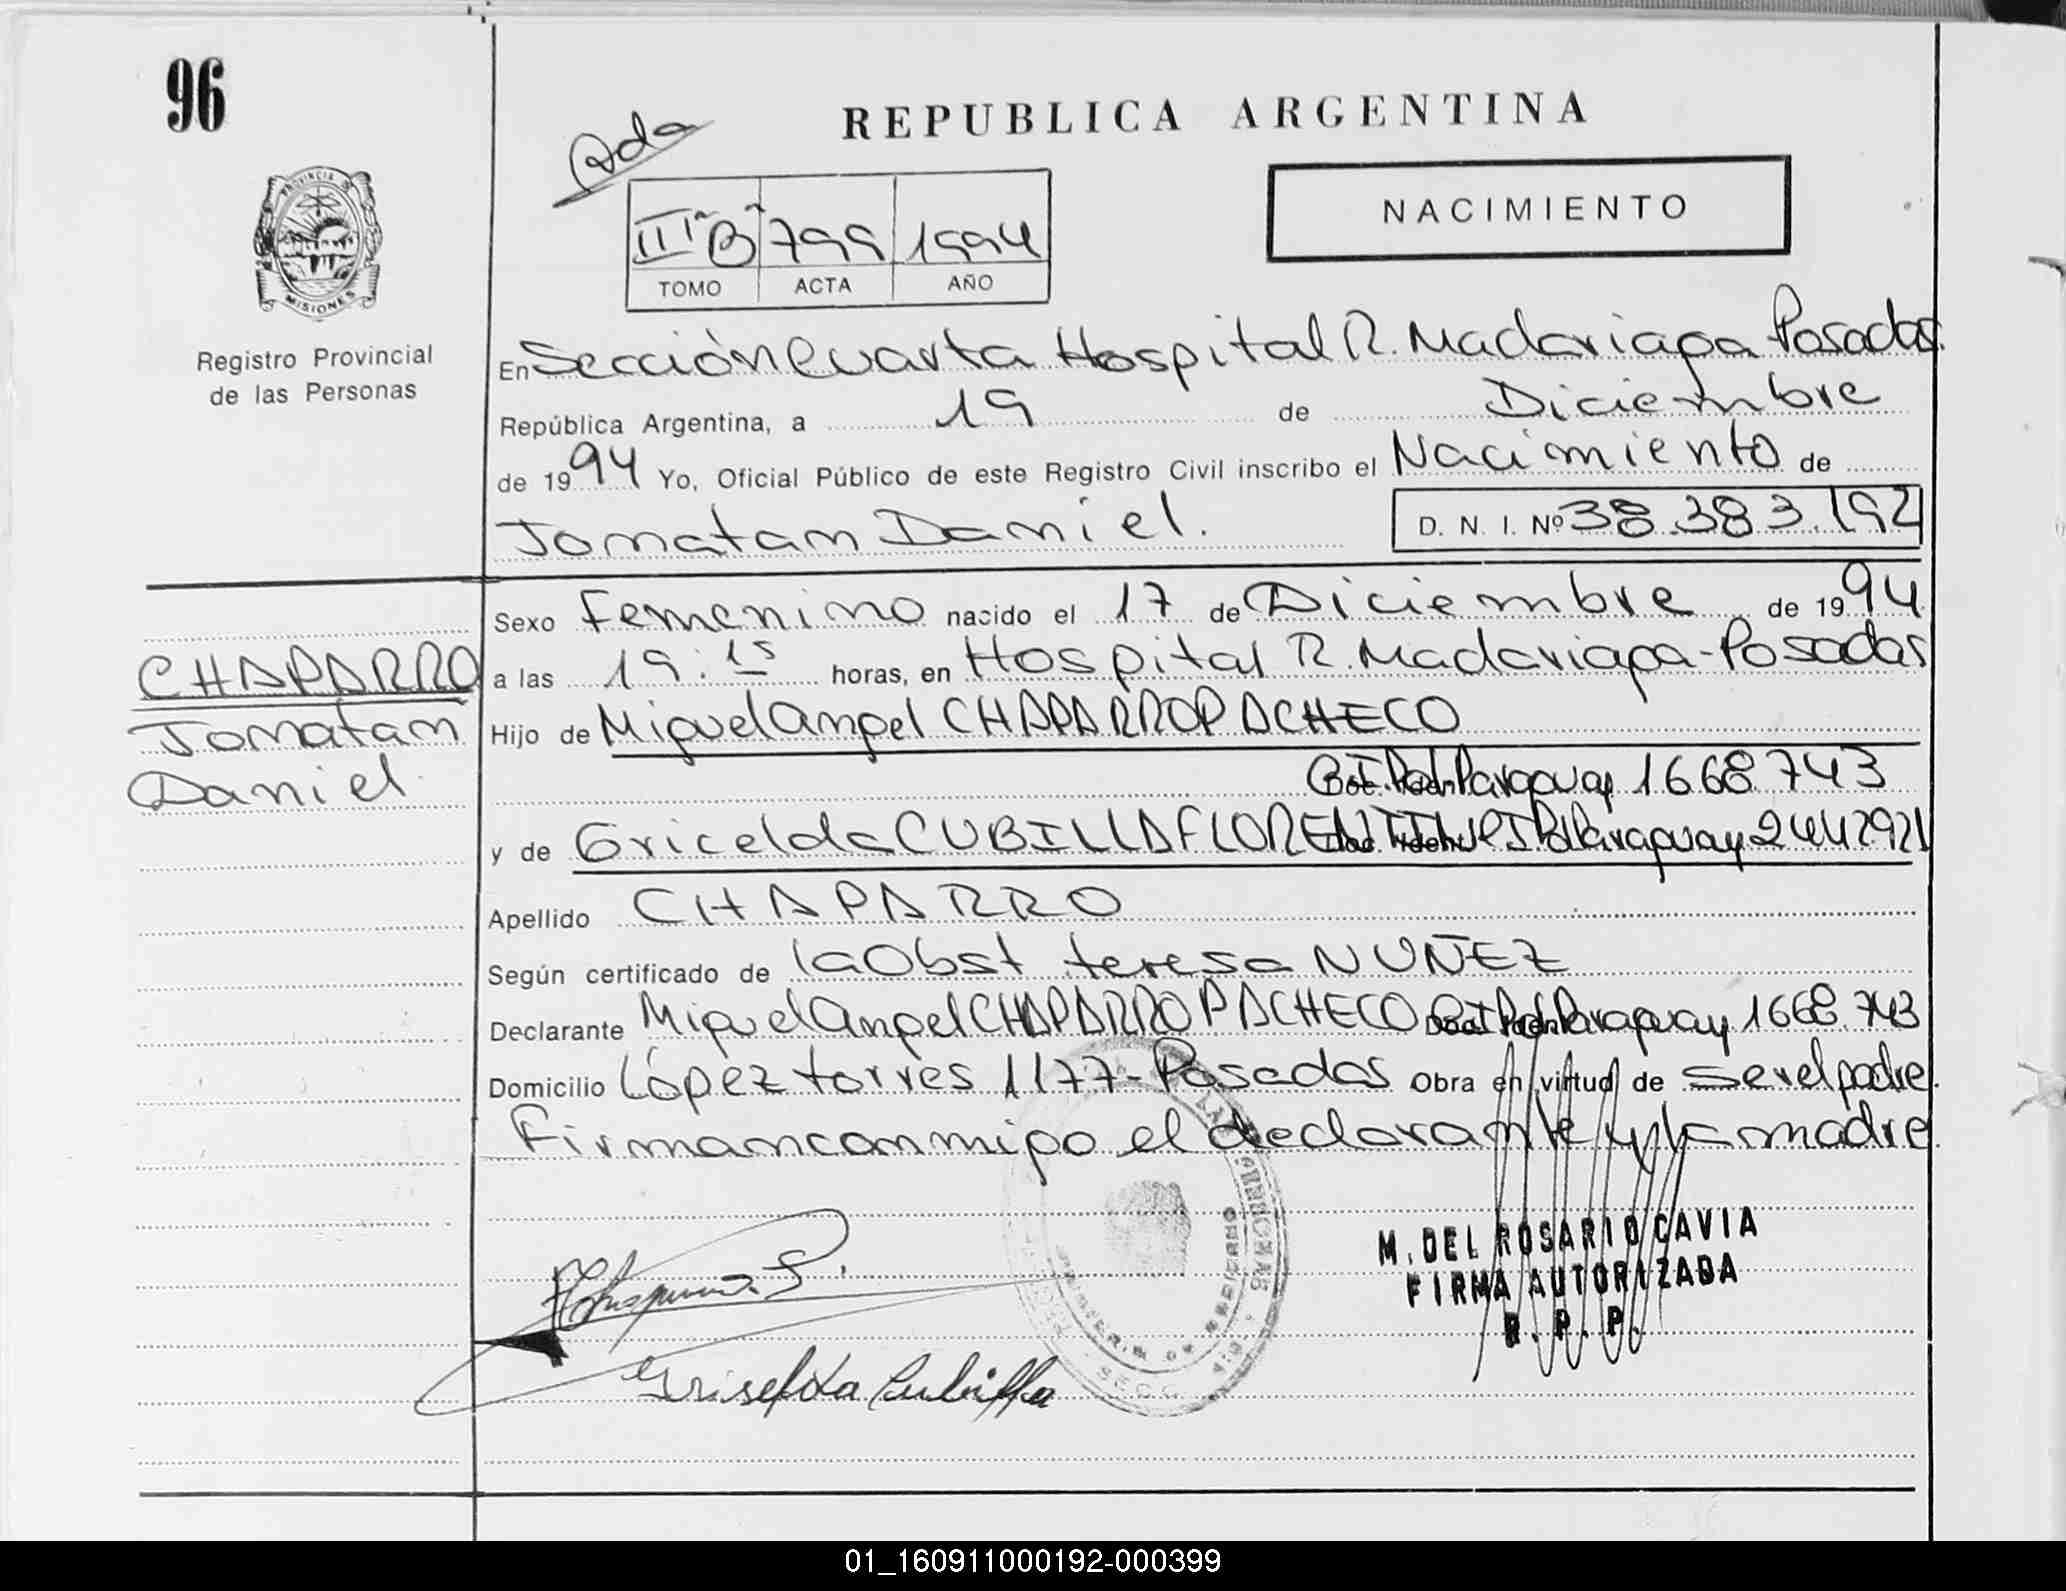 96
REPUBLICA ARGENTINA
Ada
NACIMIENTO
PROVINCIA DE
MISIONES
III B 799 1994
TOMO ACTA AÑO
Registro Provincial
de las Personas
En Sección Cuarta Hospital R. Madariaga Posadas.
República Argentina, a 19 de Diciembre
de 1994 Yo, Oficial Público de este Registro Civil inscribo el Nacimiento de
Jonatan Daniel.
D. N. I. Nº 38.383.192
Sexo Femenino nacido el 17 de Diciembre de 1994
CHAPARRO
a las 19:15 horas, en Hospital R. Madariaga-Posadas
Jonatan
Hijo de Miguel Angel CHAPARRO PACHECO
Daniel.
Paraguay 1668.743
y de Gricelda CUBILLA FLORENTIN Paraguay 2442921
Apellido CHAPARRO
Según certificado de la Obst teresa NUÑEZ
Declarante Miguel Angel CHAPARRO PACHECO Paraguay 1668.743
Domicilio López torres 1177-Posadas Obra en virtud de ser el padre.
Firman conmigo el declarante y la madre.
M. DEL ROSARIO CAVIA
FIRMA AUTORIZADA
R. P. P.
Griselda Cubilla
01_160911000192-000399